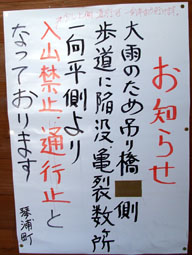 お知らせ
大雨のため吊り橋 側
歩道に陥没亀裂数ヶ所
一向平側より
入山禁止・通行止と
なっております
琴浦町